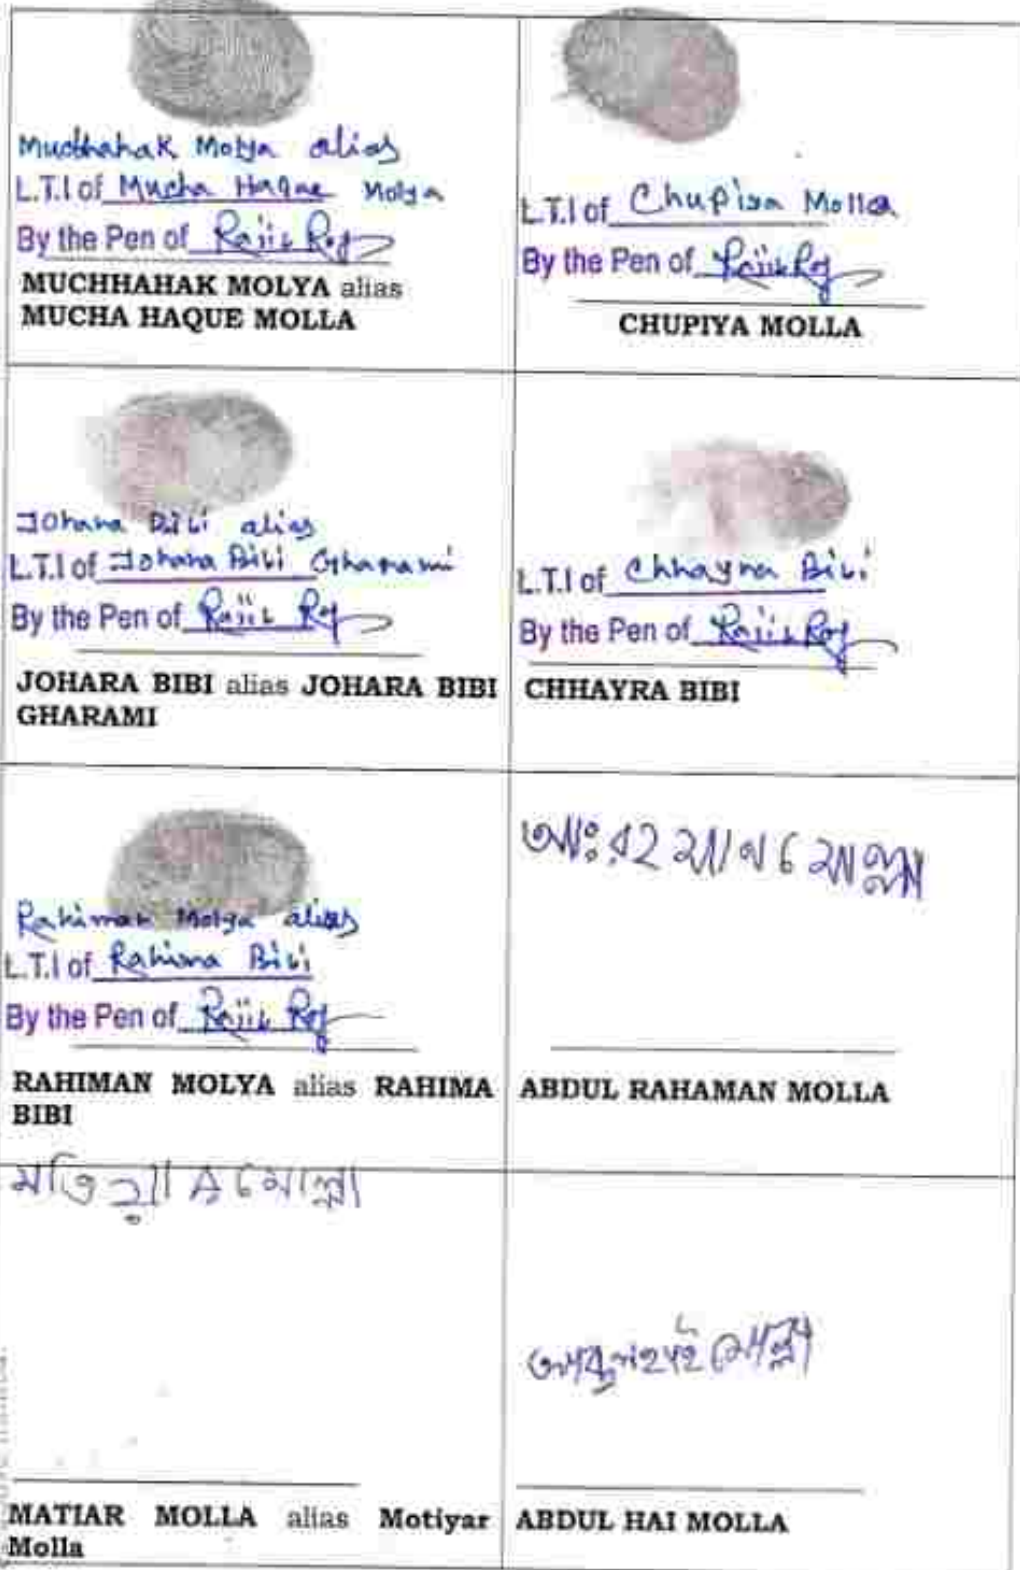 Muchhahak Molya alias
L.T.I of Mucha Haque Molya
By the Pen of Rajib Roy
MUCHHAHAK MOLYA alias
MUCHA HAQUE MOLLA
L.T.I of Chupiya Molla
By the Pen of Rajib Roy
CHUPIYA MOLLA
Johara Bibi alias
L.T.I of Johara Bibi Gharami
By the Pen of Rajib Roy
JOHARA BIBI alias JOHARA BIBI
GHARAMI
L.T.I of Chhayra Bibi
By the Pen of Rajib Roy
CHHAYRA BIBI
Rahiman Molya alias
L.T.I of Rahima Bibi
By the Pen of Rajib Roy
RAHIMAN MOLYA alias RAHIMA
BIBI
আঃ রহমান মোল্লা
ABDUL RAHAMAN MOLLA
মতিয়ার মোল্লা
MATIAR MOLLA alias Motiyar
Molla
আব্দুল হাই মোল্লা
ABDUL HAI MOLLA